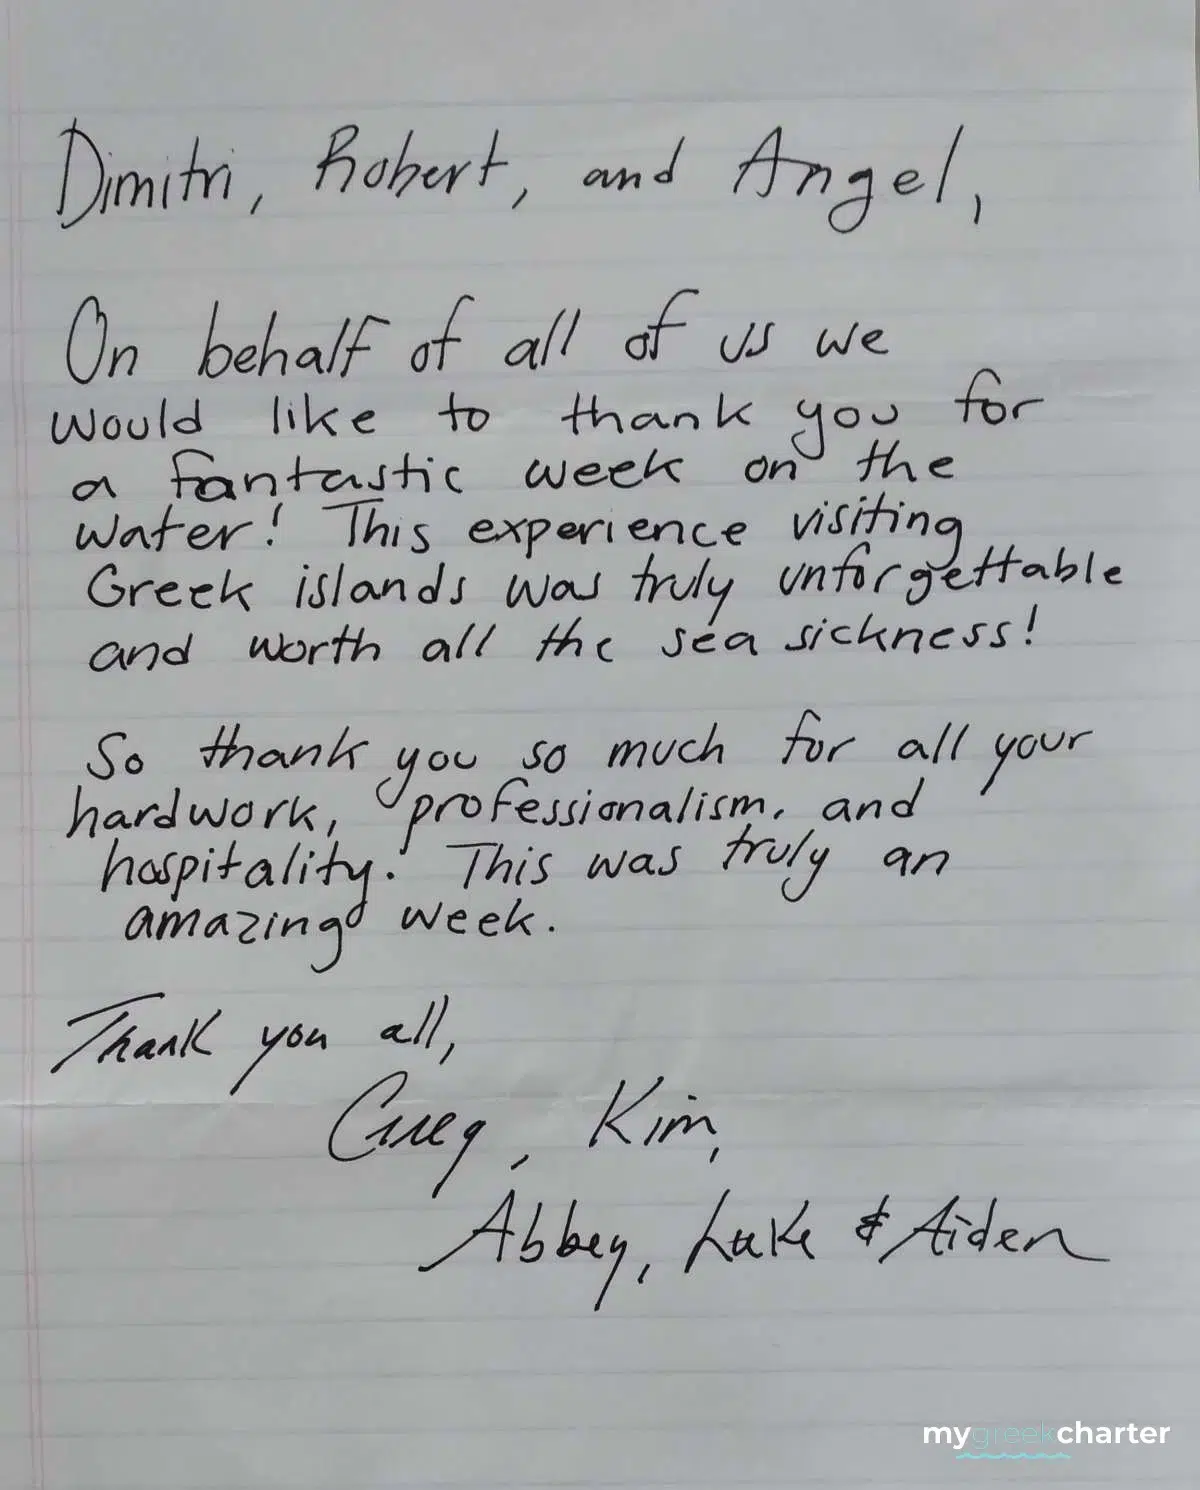 Dimitri, Robert, and Angel,
On behalf of all of us we
would like to thank you for
a fantastic week on the
water! This experience visiting
Greek islands was truly unforgettable
and worth all the sea sickness!
So thank you so much for all your
hardwork, professionalism, and
hospitality! This was truly an
amazing week.
Thank you all,
Greg, Kim,
Abbey, Luke & Aiden
mygreekcharter